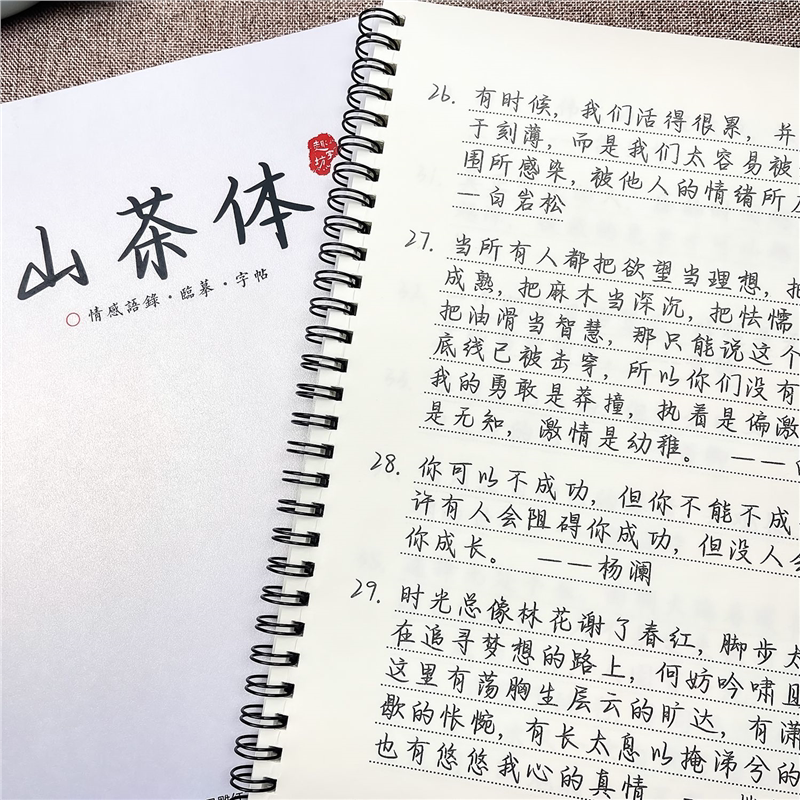 山茶体
情感語錄·臨摹·字帖
趣字坊
26. 有时候, 我们活得很累, 并
于刻薄, 而是我们太容易被
围所感染, 被他人的情绪所
—白岩松
27. 当所有人都把欲望当理想, 把
成熟, 把麻木当深沉, 把怯懦
把油滑当智慧, 那只能说这个
底线已被击穿, 所以你们没有
我的勇敢是莽撞, 执着是偏激
是无知, 激情是幼稚。 ——
28. 你可以不成功, 但你不能不成
许有人会阻碍你成功, 但没人会
你成长。 ——杨澜
29. 时光总像林花谢了春红, 脚步太
在追寻梦想的路上, 何妨吟啸且
这里有荡胸生层云的旷达, 有潇
歇的怅惋, 有长太息以掩涕兮的
也有悠悠我心的真情